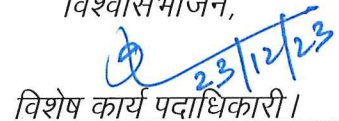 विश्वासभाजन,
23/12/23
विशेष कार्य पदाधिकारी।